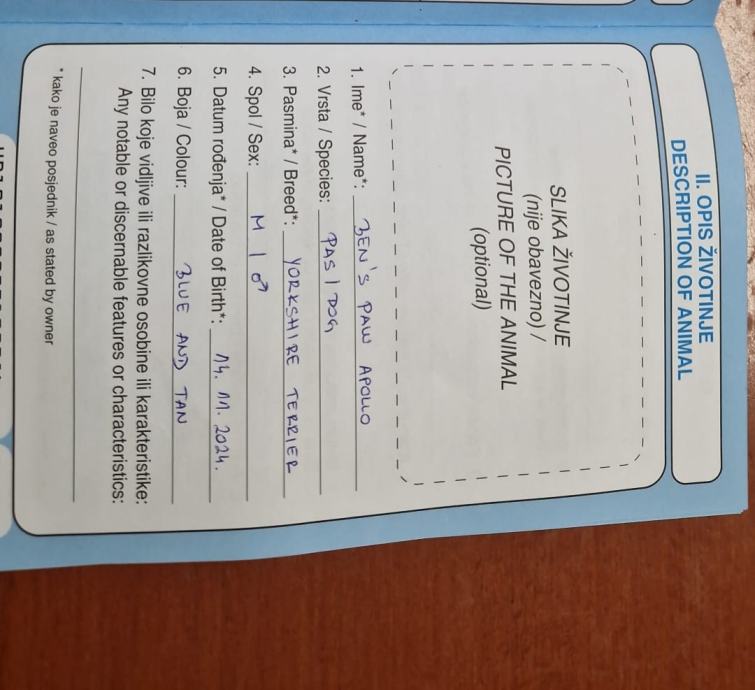 II. OPIS ŽIVOTINJE
DESCRIPTION OF ANIMAL
SLIKA ŽIVOTINJE
(nije obavezno) /
PICTURE OF THE ANIMAL
(optional)
1. Ime* / Name*: BEN'S PAW APOLLO
2. Vrsta / Species: PAS / DOG
3. Pasmina* / Breed*: YORKSHIRE TERRIER
4. Spol / Sex: M / ♂
5. Datum rođenja* / Date of Birth*: 14. 11. 2024.
6. Boja / Colour: BLUE AND TAN
7. Bilo koje vidljive ili razlikovne osobine ili karakteristike:
Any notable or discernable features or characteristics:
* kako je naveo posjednik / as stated by owner